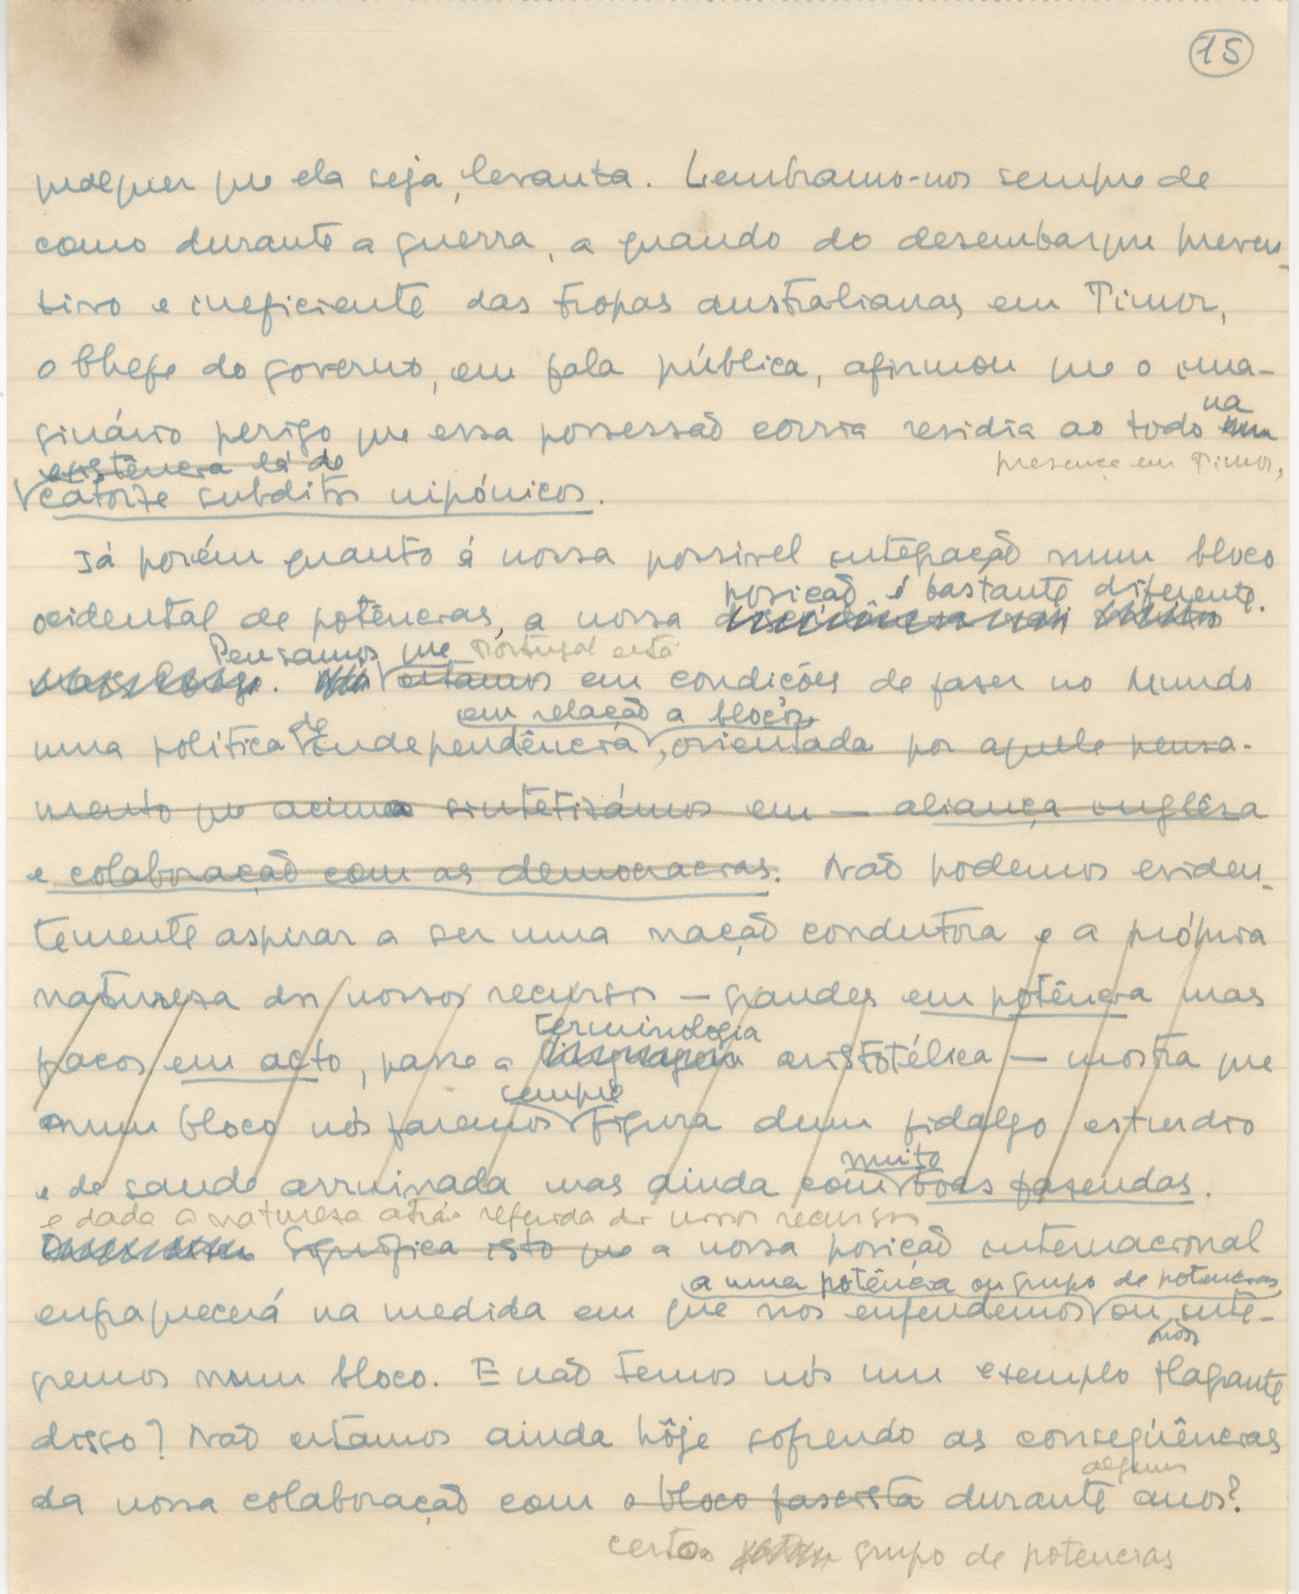 15
qualquer que ela seja, levanta. Lembramo-nos sempre de
como durante a guerra, a quando do desembarque preven-
tivo e ineficiente das tropas australianas em Timor,
o Chefe do governo, em fala pública, afirmou que o ima-
na
ginário perigo que essa possessão corria residia ao todo em
existência lá de
presença em Timor,
catorze subditos nipónicos.
Já porém quanto á nossa possivel integração num bloco
posição é bastante diferente.
ocidental de potências, a nossa
Pensamos que Portugal está
estamos em condições de faser no Mundo
de em relação a blocos
uma politica independência, orientada por aquele pensa-
mento que acima sintetisámos em — aliança inglêsa
e colaboração com as democracias. Não podemos eviden-
temente aspirar a ser uma nação condutora e a própria
naturesa dos nossos recursos — grandes em potência mas
terminologia
pacos em acto, passe a linguagem aristotélica — mostra que
sempre
num bloco nós faremos figura dum fidalgo esturdio
muito
e de saude arruinada mas ainda com boas fasendas.
e dada a naturesa atrás referida dos nossos recursos
Significa isto que a nossa posição internacional
a uma potência ou grupo de potencias
enfraquecerá na medida em que nos enfeudemos ou inte-
nos
gremos num bloco. E não temos nós um exemplo flagrante
disso? Não estamos ainda hôje sofrendo as conseqüências
alguns
da nossa colaboração com o bloco fascista durante anos?
certo grupo de potencias